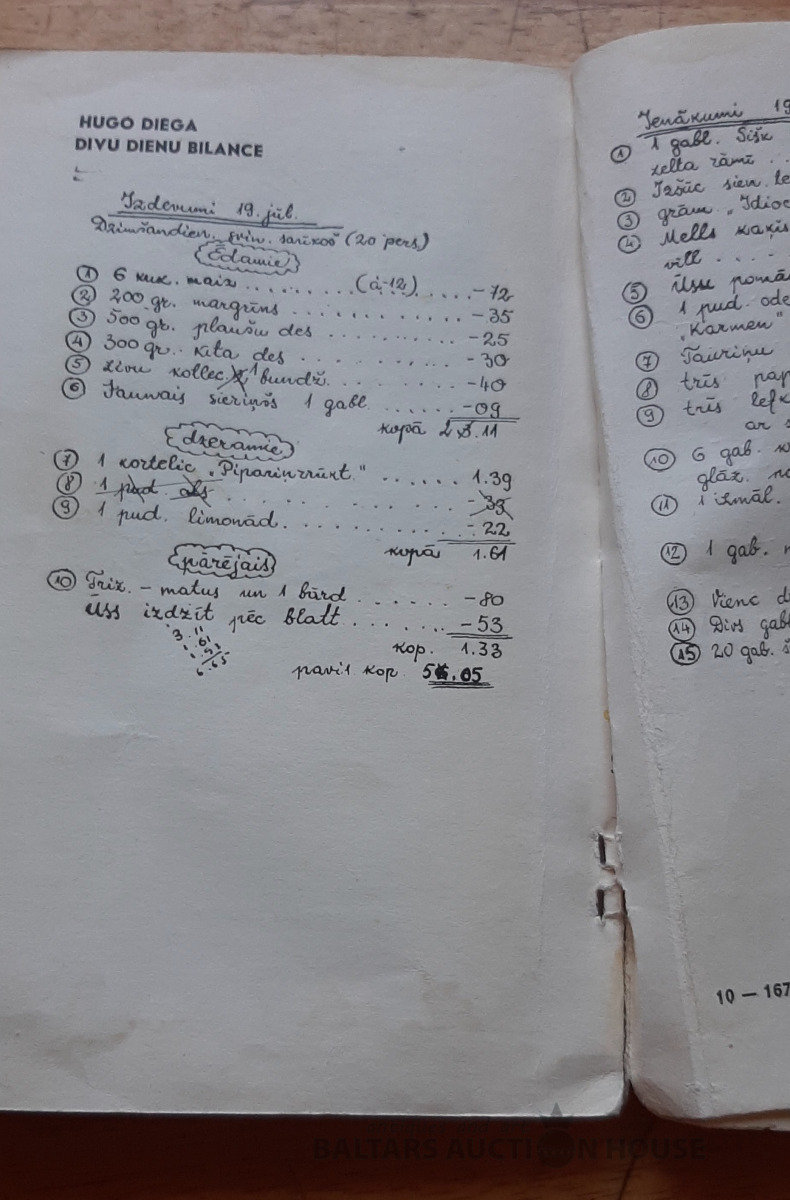 HUGO DIEGA
DIVU DIENU BILANCE
Izdevumi 19. jūl.
Dzimšandien. svin. sarīkoš (20 pers)
Ēdamie
① 6 kuk. maiz ......... (à-12) .... -72
② 200 gr. margrīns ........... -35
③ 500 gr. plaušu des .......... -25
④ 300 gr. ķīta des .......... -30
⑤ zivu kollec. 1 bundž. ........ -40
⑥ Jaunais sieriņš 1 gabl ...... -09
kopā 2.11
dzeramie
⑦ 1 kortelic „Pipariņrūkt." ...... 1.39
⑧ 1 pud. als .......... -33
⑨ 1 pud. limonād. .......... -22
kopā 1.61
pārējais
⑩ Friz. - matus un 1 bārd ...... -80
Ūss izdzīt pēc blatt ...... -53
kop. 1.33
3.11
6.65
pavis kop. 5.05
Ienākumi 19
① 1 gabl. Šišk
zelta rāmī ..
② Izšūc sien. te
③ grām. „Idio
④ Mells kaķis
vilī ....
⑤ Ūssu pomā
⑥ 1 pud. ode
„Karmen"
⑦ Tauriņu
⑧ trīs pap
⑨ trīs lefk
ar s
⑩ 6 gab.
glāz. no
⑪ 1 izmāl.
⑫ 1 gab.
⑬ Vienc d
⑭ Divs gabl
⑮ 20 gab. š
10 — 167
BALTARS AUCTION HOUSE